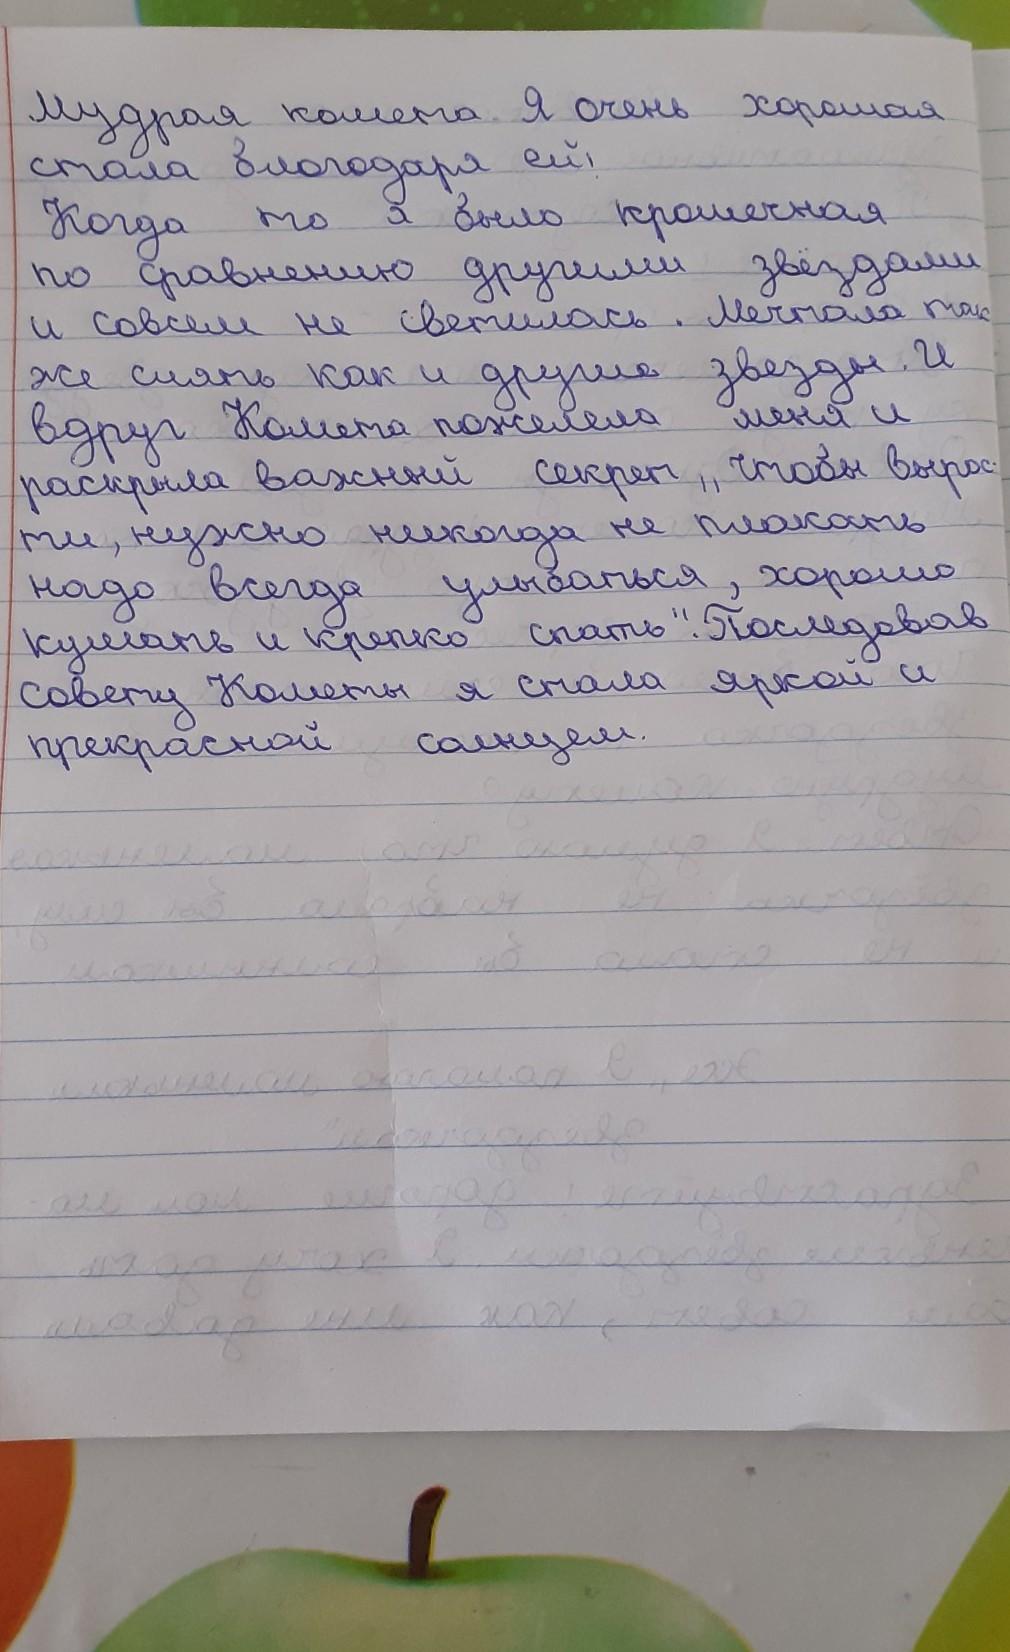 Мудрая комета. Я очень хорошая
стала благодаря ей!
Когда то я было крошечная
по сравнению другими звёздами
и совсем не светилась. Мечтала так
же сиять как и другие звезды. И
вдруг Комета пожелела меня и
раскрыла важний секрет „чтобы вырос-
ти, нужно никогда не плакать
надо всегда улыбаться, хорошо
кушать и крепко спать". Последовав
совету Кометы я стала яркой и
прекрасной солнцем.